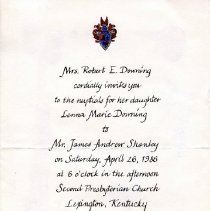 Mrs. Robert E. Downing
cordially invites you
to the nuptials for her daughter
Lenna Marie Downing
to
Mr. James Andrew Shanley
on Saturday, April 26, 1986
at 6 o'clock in the afternoon
Second Presbyterian Church
Lexington, Kentucky